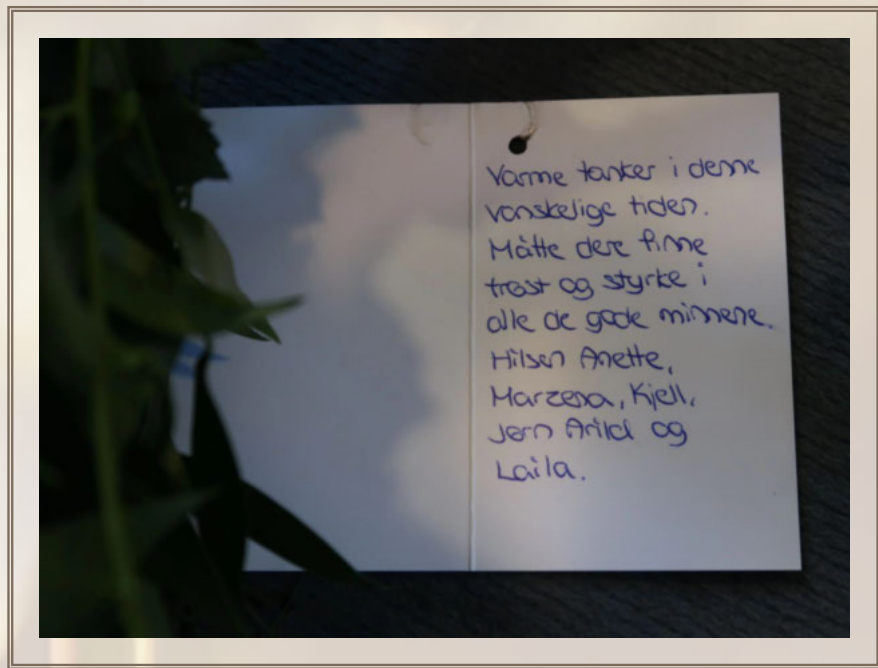 Varme tanker i denne
vanskelige tiden.
Måtte dere finne
trøst og styrke i
alle de gode minnene.
Hilsen Anette,
Marzena, Kjell,
Jørn Arild og
Laila.